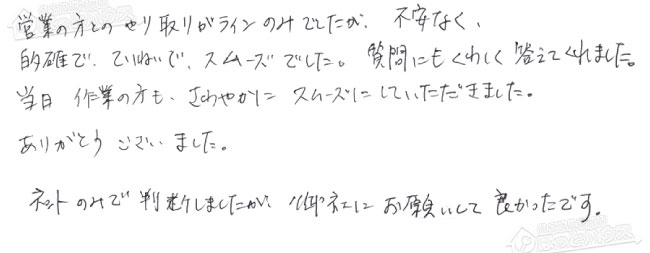 営業の方とのやり取りがラインのみでしたが、不安なく、
的確で、ていねいで、スムーズでした。質問にもくわしく答えてくれました。
当日 作業の方も、さわやかに スムーズにしていただきました。
ありがとう ございました。
ネットのみで判断しましたが、御社に お願いして 良かったです。